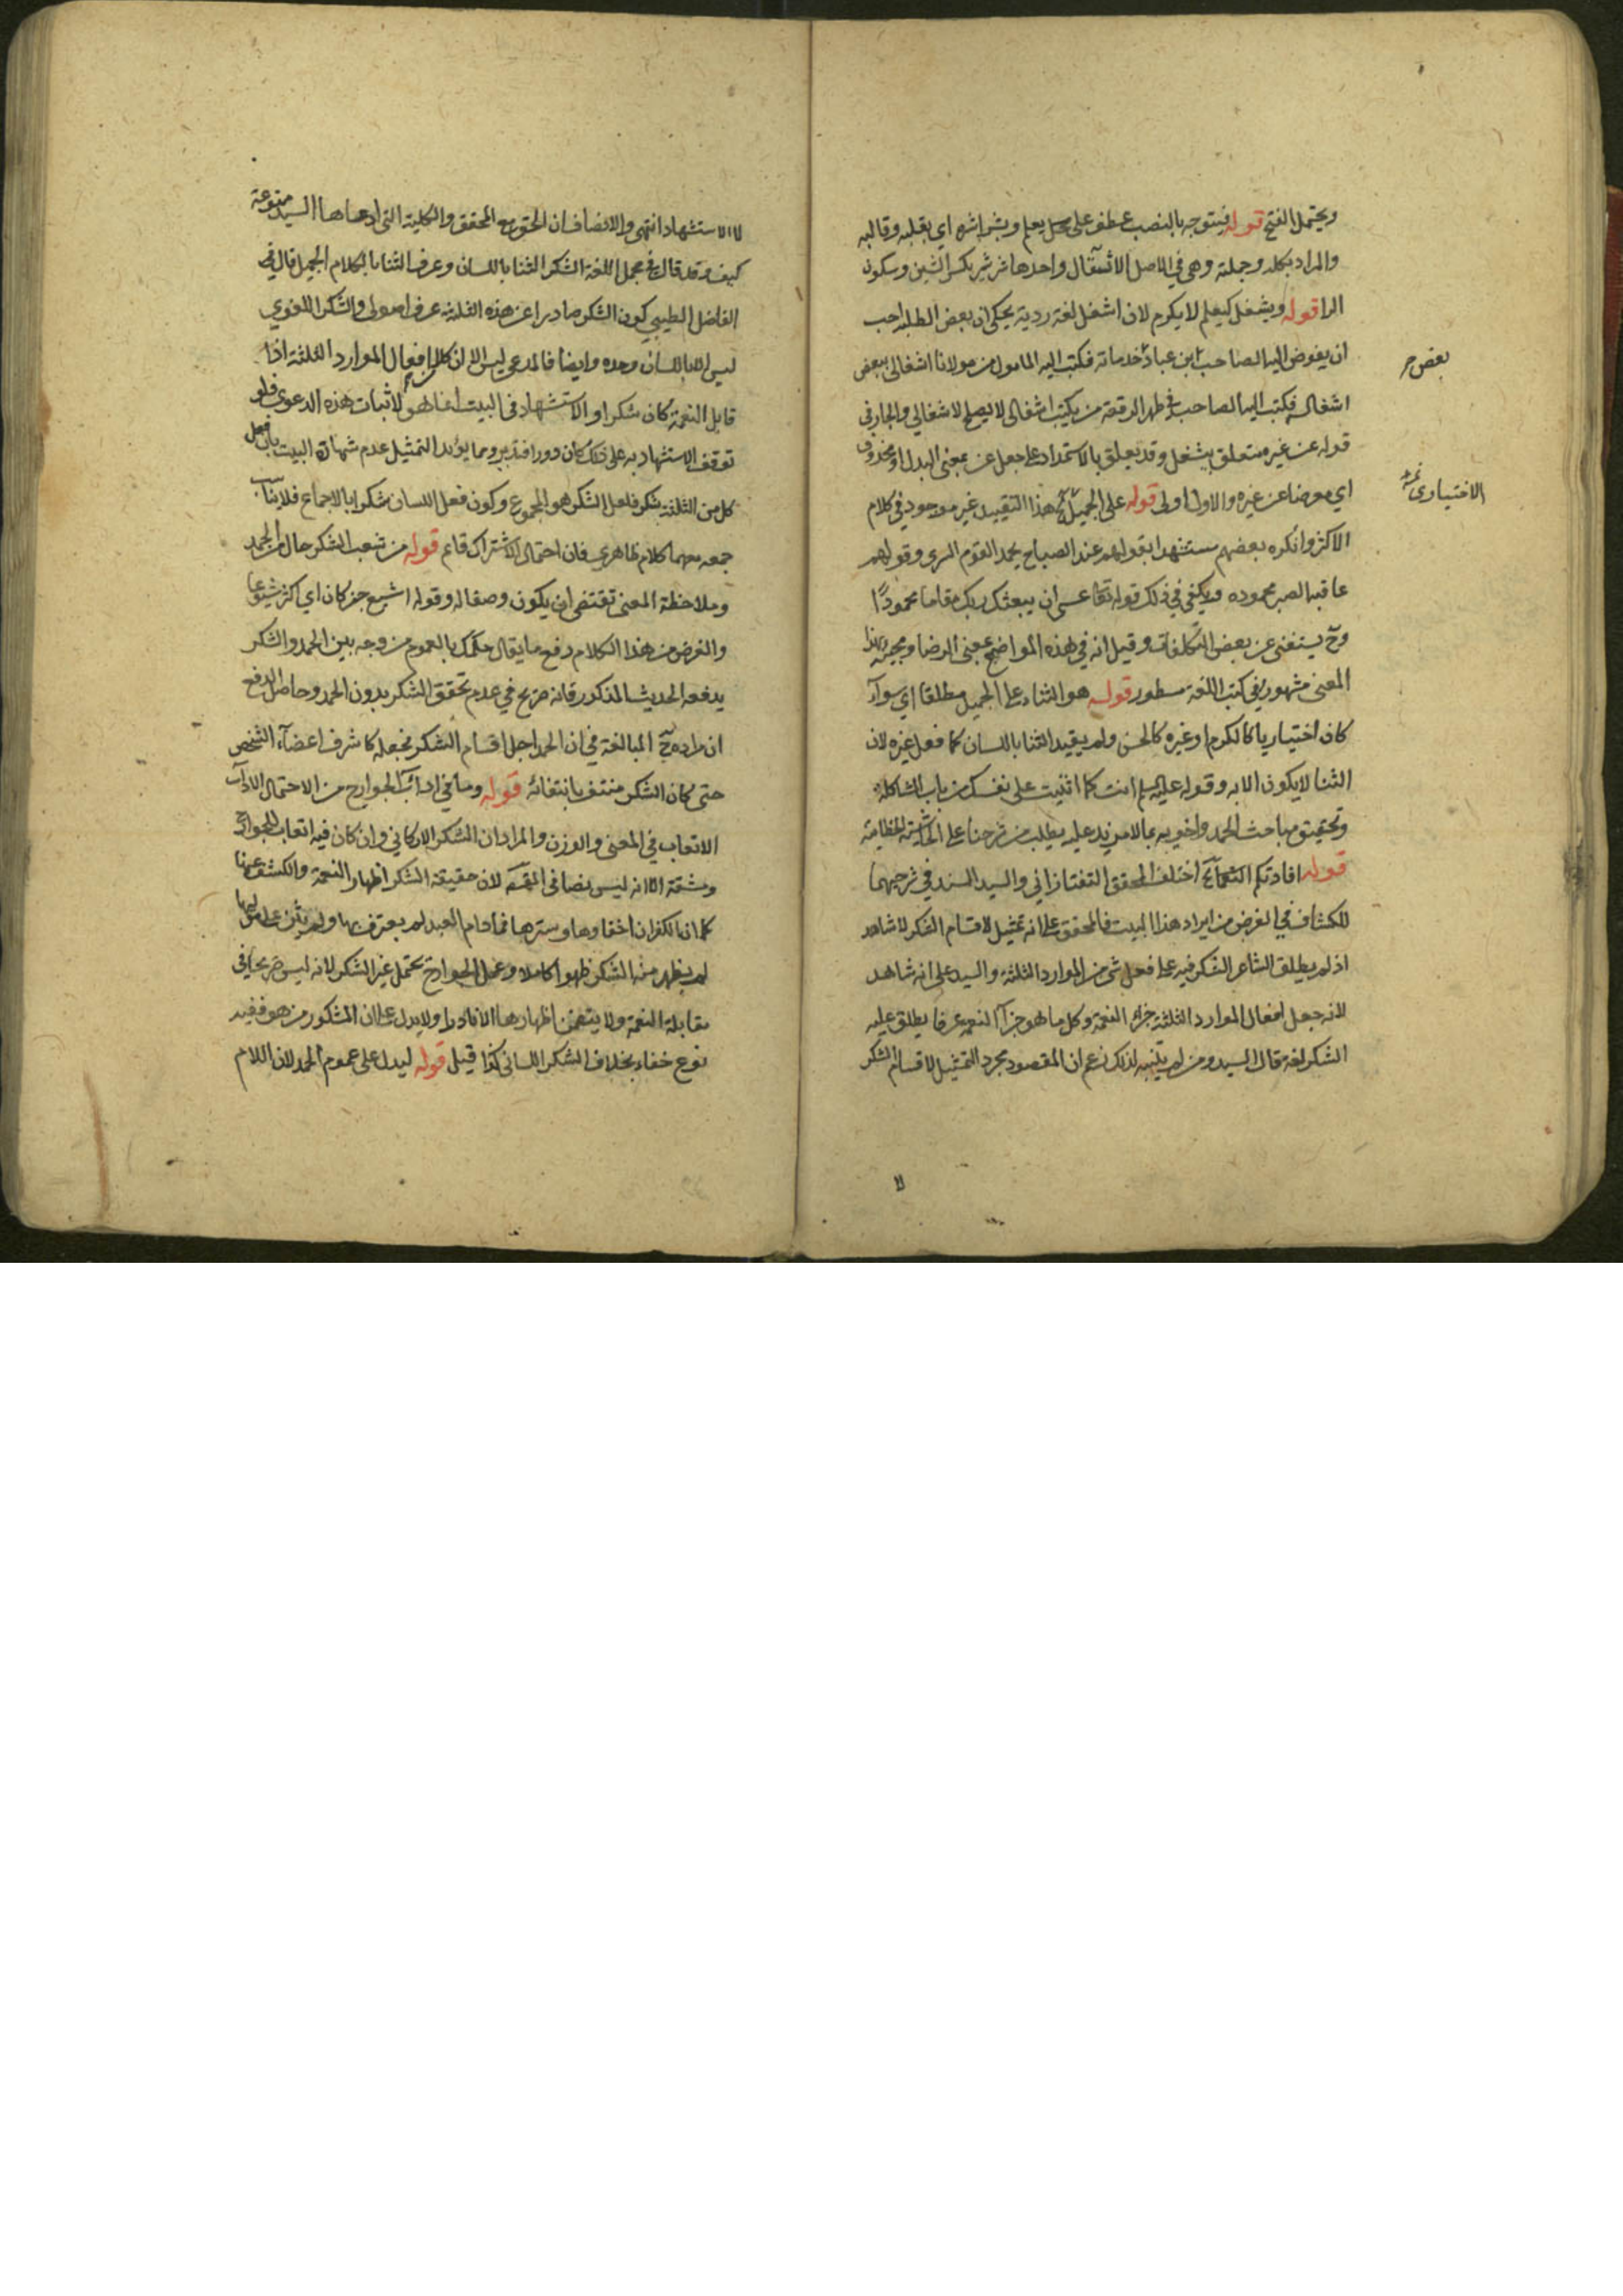 ويحتمل الفتح قوله فيتوجه بالنصب عطف على محل يعلم وبشراشره اي بقلبه وقالبه
والمراد بكله وجملته وهي في الاصل الاثقال واحدها شرشر بكسر الشين وسكون
الرا قوله ويشغل كيعلم لا يكرم لان اشغل لغة ردية يحكى ان بعض الطلبة احب
ان يفوض اليه الصاحب ابن عباد خدماته فكتب اليه المامول من مولانا اشغالي ببعض
بعض
اشغاله فكتب اليه الصاحب في ظهر الرقعة من يكتب اشغالي لا يصلح لاشغالي والجار في
قوله عن غيره متعلق بيشغل وقد يعلق بالاستمداد على جعل عن بمعنى البدل او بمحذوف
اي معرضا عن غيره والاول اولى قوله على الجميل هذا التقييد غير موجود في كلام
الاختياري
الاكثر وانكره بعضهم مستشهدا بقولهم عند الصباح يحمد القوم السرى وقولهم
عاقبة الصبر محموده ويكفي في ذلك قوله تعا عسى ان يبعثك ربك مقاما محمودًا
وح يستغنى عن بعض التكلفات وقيل انه في هذه المواضع بمعنى الرضا ومجيئه بهذا
المعنى مشهور في كتب اللغة مسطور قوله هو الثناء على الجميل مطلقا اي سواء
كان اختياريا كالكرم او غيره كالحسن ولم يقيد الثنا باللسان كما فعل غيره لان
الثنا لا يكون الا به وقوله عليه السلم انت كما اثنيت على نفسك من باب المشاكلة
وتحقيق مباحث الحمد واخويه بما لا مزيد عليه يطلب من شرحنا على الحاشية الخطايية
قوله افادتكم النعماء اختلف المحقق التفتازاني والسيد السند في شرحيهما
للكشاف في الغرض من ايراد هذا البيت فالمحقق على انه تمثيل لاقسام الشكر لا شاهد
اذ لم يطلق الشاعر الشكر فيه على فعل شي من الموارد الثلثة والسيد على انه شاهد
لانه جعل افعال الموارد الثلثة جزاء النعمة وكل ما هو جزآء النعمة عرفا يطلق عليه
الشكر لغة قال السيد ومن لم يتنبه لذلك زعم ان المقصود مجرد التمثيل لاقسام الشكر
لا
لا الاستشهاد انتهى والانصاف ان الحق مع المحقق والكلية التي ادعاها السيد ممنوعة
كيف وقد قال في مجمل اللغة الشكر الثنا باللسان وعرف الثنا بالكلام الجميل قال
الفاضل الطيبي كون الشكر صادرا عن هذه الثلثة عرف اصولي والشكر اللغوي
ليس الا باللسان وحده وايضا فالمدعى ليس الا ان كلا من افعال الموارد الثلثة اذا
قابل النعمة كان شكرا والاستشهاد في البيت انما هو لاثبات هذه الدعوى فلو
توقف الاستشهاد به على ذلك كان دورا فتدبر ومما يؤيد التمثيل عدم شهادة البيت بان فعل
كل من الثلثة شكر فلعل الشكر هو المجموع وكون فعل اللسان شكرا بالاجماع فلا يناسب
جمعه معهما كلام ظاهري فان احتمال الاشتراك قائم قوله من شعب الشكر حال من الحمد
وملاحظة المعنى تقتضي ان يكون وصفا له وقوله اشيع خبر كان اي اكثر شيوعا
والغرض من هذا الكلام دفع ما يقال حكمك بالعموم من وجه بين الحمد والشكر
يدفعه الحديث المذكور فانه صريح في عدم تحقق الشكر بدون الحمد وحاصل الدفع
ان مراده المبالغة في ان الحمد اجل اقسام الشكر فجعله كاشرف اعضآء الشخص
حتى كان الشكر منتف بانتفائه قوله وما في ادآب الجوارح من الاحتمال الادآب
الاتعاب في المعنى والوزن والمراد ان الشكر الاركاني وان كان فيه اتعاب للجوارح
ومشقة الا انه ليس نصا في المقصود لان حقيقة الشكر اظهار النعمة والكشف عنها
كما ان الكفران اخفاوها وسترها فما دام العبد لم يعترف بها ولم يثن على موليها
لم يظهر منه الشكر ظهورا كاملا وعمل الجوارح يحتمل غير الشكر لانه ليس صريحا في
مقابلة النعمة ولا يتضمن اظهارها الا نادرا ولا يدل على ان المشكور من هو ففيه
نوع خفاء بخلاف الشكر اللساني كذا قيل قوله ليدل على عموم الحمد لان اللام